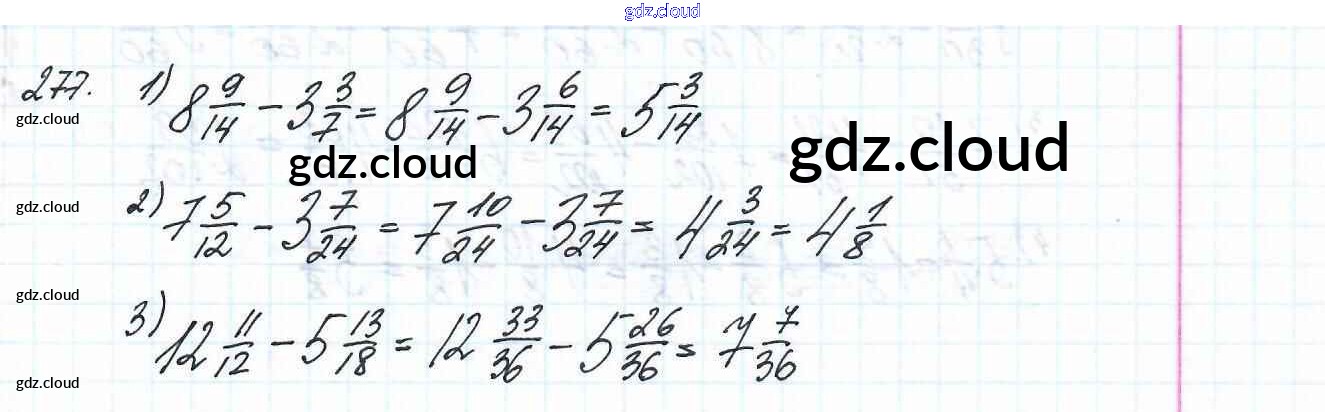 gdz.cloud
277. 1) 8 9/14 - 3 3/7 = 8 9/14 - 3 6/14 = 5 3/14
gdz.cloud
gdz.cloud
gdz.cloud
2) 7 5/12 - 3 7/24 = 7 10/24 - 3 7/24 = 4 3/24 = 4 1/8
gdz.cloud
gdz.cloud
3) 12 11/12 - 5 13/18 = 12 33/36 - 5 26/36 = 7 7/36
gdz.cloud